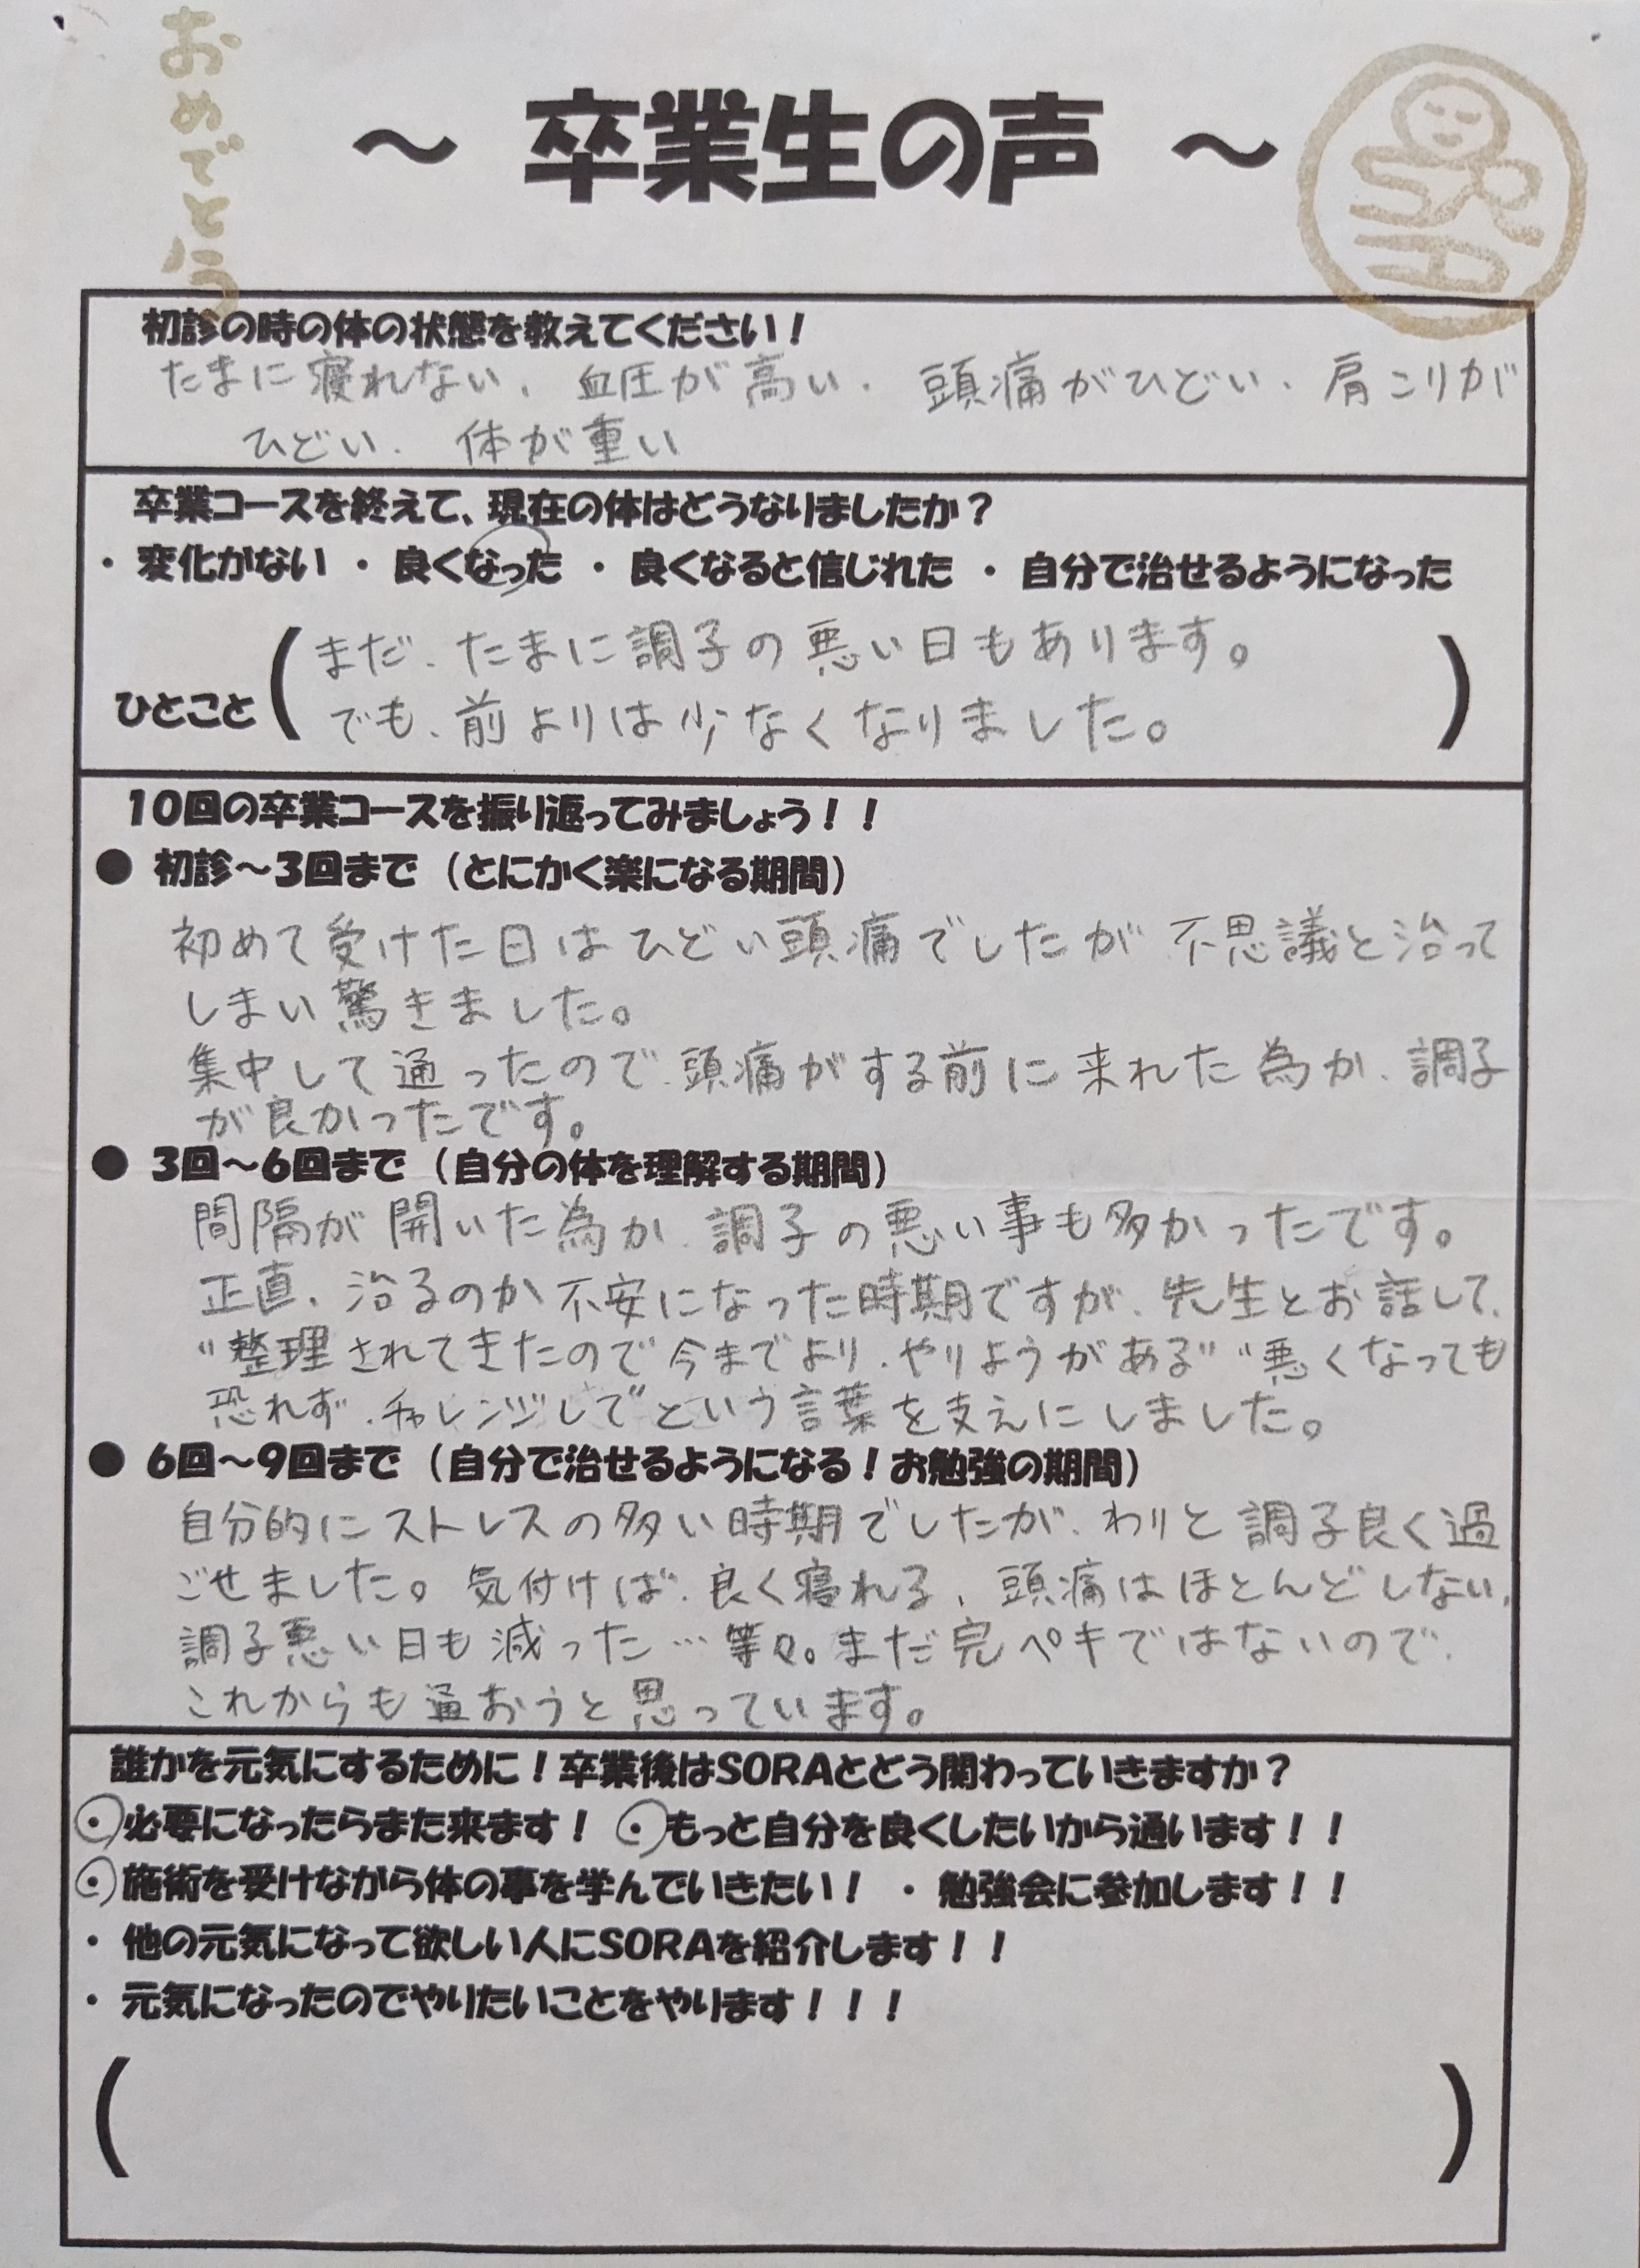 おめでとう
～ 卒業生の声 ～
初診の時の体の状態を教えてください！
たまに寝れない、血圧が高い、頭痛がひどい、肩こりが
ひどい、体が重い
卒業コースを終えて、現在の体はどうなりましたか？
・変化がない ・良くなった ・良くなると信じれた ・自分で治せるようになった
まだ、たまに調子の悪い日もあります。
ひとこと（でも、前よりは少なくなりました。）
10回の卒業コースを振り返ってみましょう！！
● 初診～3回まで（とにかく楽になる期間）
初めて受けた日はひどい頭痛でしたが不思議と治って
しまい驚きました。
集中して通ったので、頭痛がする前に来れた為か、調子
が良かったです。
● 3回～6回まで（自分の体を理解する期間）
間隔が開いた為か、調子の悪い事も多かったです。
正直、治るのか不安になった時期ですが、先生とお話して、
"整理されてきたので今までより、やりようがある" "悪くなっても
恐れず、チャレンジして"という言葉を支えにしました。
● 6回～9回まで（自分で治せるようになる！お勉強の期間）
自分的にストレスの多い時期でしたが、わりと調子良く過
ごせました。気付けば、良く寝れる、頭痛はほとんどしない、
調子悪い日も減った…等々。まだ完ペキではないので、
これからも通おうと思っています。
誰かを元気にするために！卒業後はSORAとどう関わっていきますか？
・必要になったらまた来ます！ ・もっと自分を良くしたいから通います！！
・施術を受けながら体の事を学んでいきたい！ ・勉強会に参加します！！
・他の元気になって欲しい人にSORAを紹介します！！
・元気になったのでやりたいことをやります！！！
（ ）